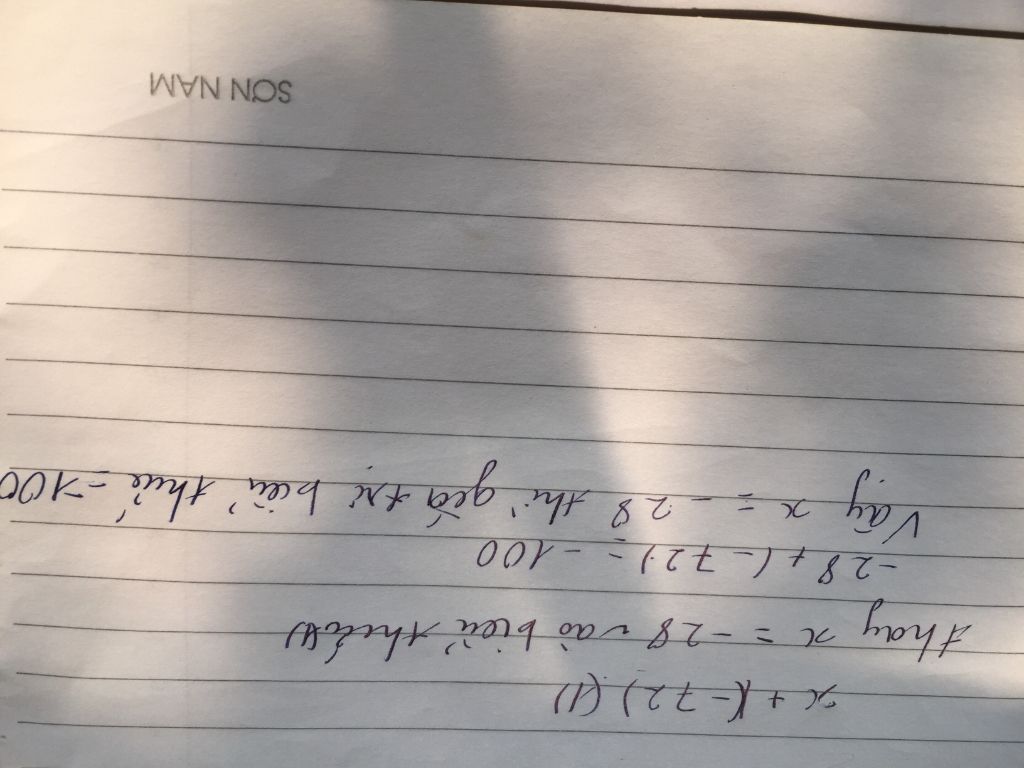 x + (-72) (1)
thay x = -28 vào biểu thức(1)
-28 + (-72) = -100
Vậy x = -28 thì giá trị biểu thức = -100
SƠN NAM